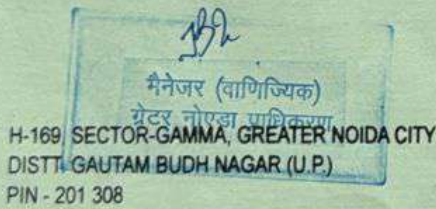 मैनेजर (वाणिज्यिक)
ग्रेटर नोएडा प्राधिकरण
H-169 SECTOR-GAMMA, GREATER NOIDA CITY
DISTT. GAUTAM BUDH NAGAR (U.P.)
PIN - 201 308